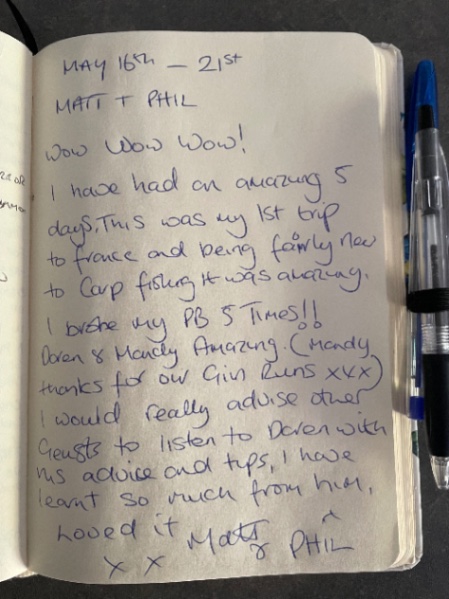 MAY 16th — 21st
MATT + PHIL
Wow Wow Wow!
I have had an amazing 5
days. This was my 1st trip
to france and being fairly new
to Carp fishing it was amazing.
I broke my PB 5 TIMES!!
Daren & Mandy Amazing. (Mandy
thanks for our Gin Runs xxx)
I would really advise other
Geusts to listen to Daren with
his advice and tips, I have
learnt so much from him,
Loved it Matt & PHIL
x x